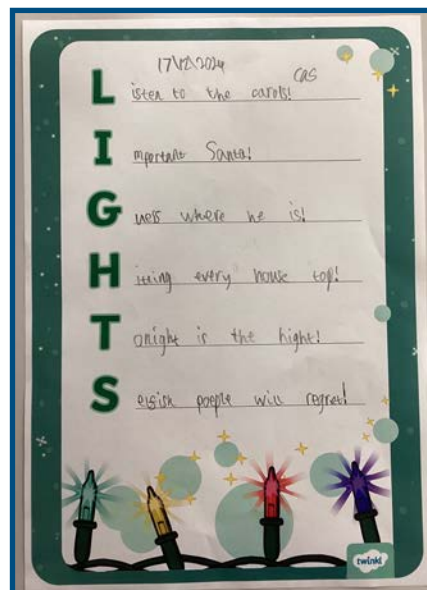 17\12\2024
CAS
Listen to the carols!
Important Santa!
Guess where he is!
Hitting every house top!
Tonight is the hight!
Selgish poeple will regret!
twinkl